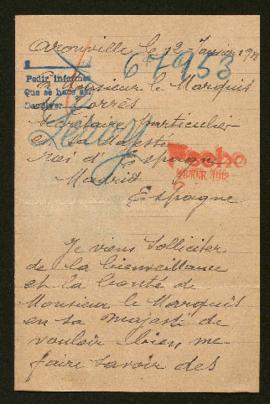 Aronville le 12 Janvier 19
67953
Pedir informes
Que se hace saber
A Monsieur le Marquis
Torrès
Secrétaire particulier
de sa Majesté
Roi d'Espagne
Madrid
Hecho
Espagne
Je viens Solliciter
de la bienveillance
et la bonté de
Monsieur le Marquis
en sa majesté de
vouloir bien me
faire savoir des